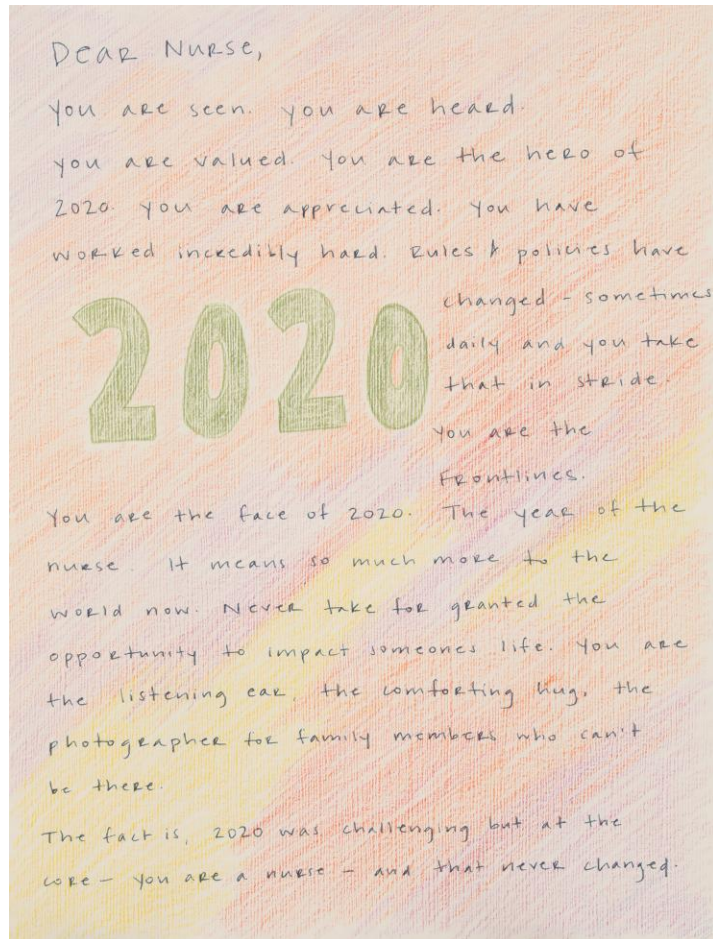 Dear Nurse,
You are seen. you are heard.
you are valued. You are the hero of
2020. you are appreciated. You have
worked incredibly hard. Rules & policies have
changed - sometimes
daily and you take
that in stride.
2020
You are the
Frontlines.
You are the face of 2020. The year of the
nurse. It means so much more to the
world now. Never take for granted the
opportunity to impact someones life. You are
the listening ear, the comforting hug, the
photographer for family members who can't
be there.
The fact is, 2020 was challenging but at the
core - you are a nurse - and that never changed.